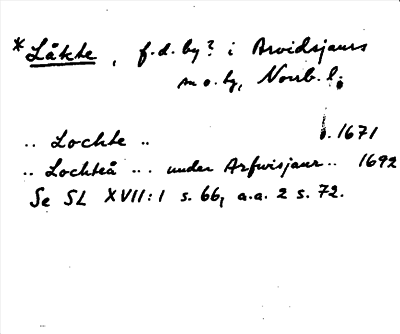 *Låkte, f.d. by? i Arvidsjaurs
sn o. lg, Norrb. l.
.. Lochte .. b. 1671
.. Lochteå ... under Arfwisjaur .. 1692
Se SL XVII:1 s. 66, a.a. 2 s. 72.